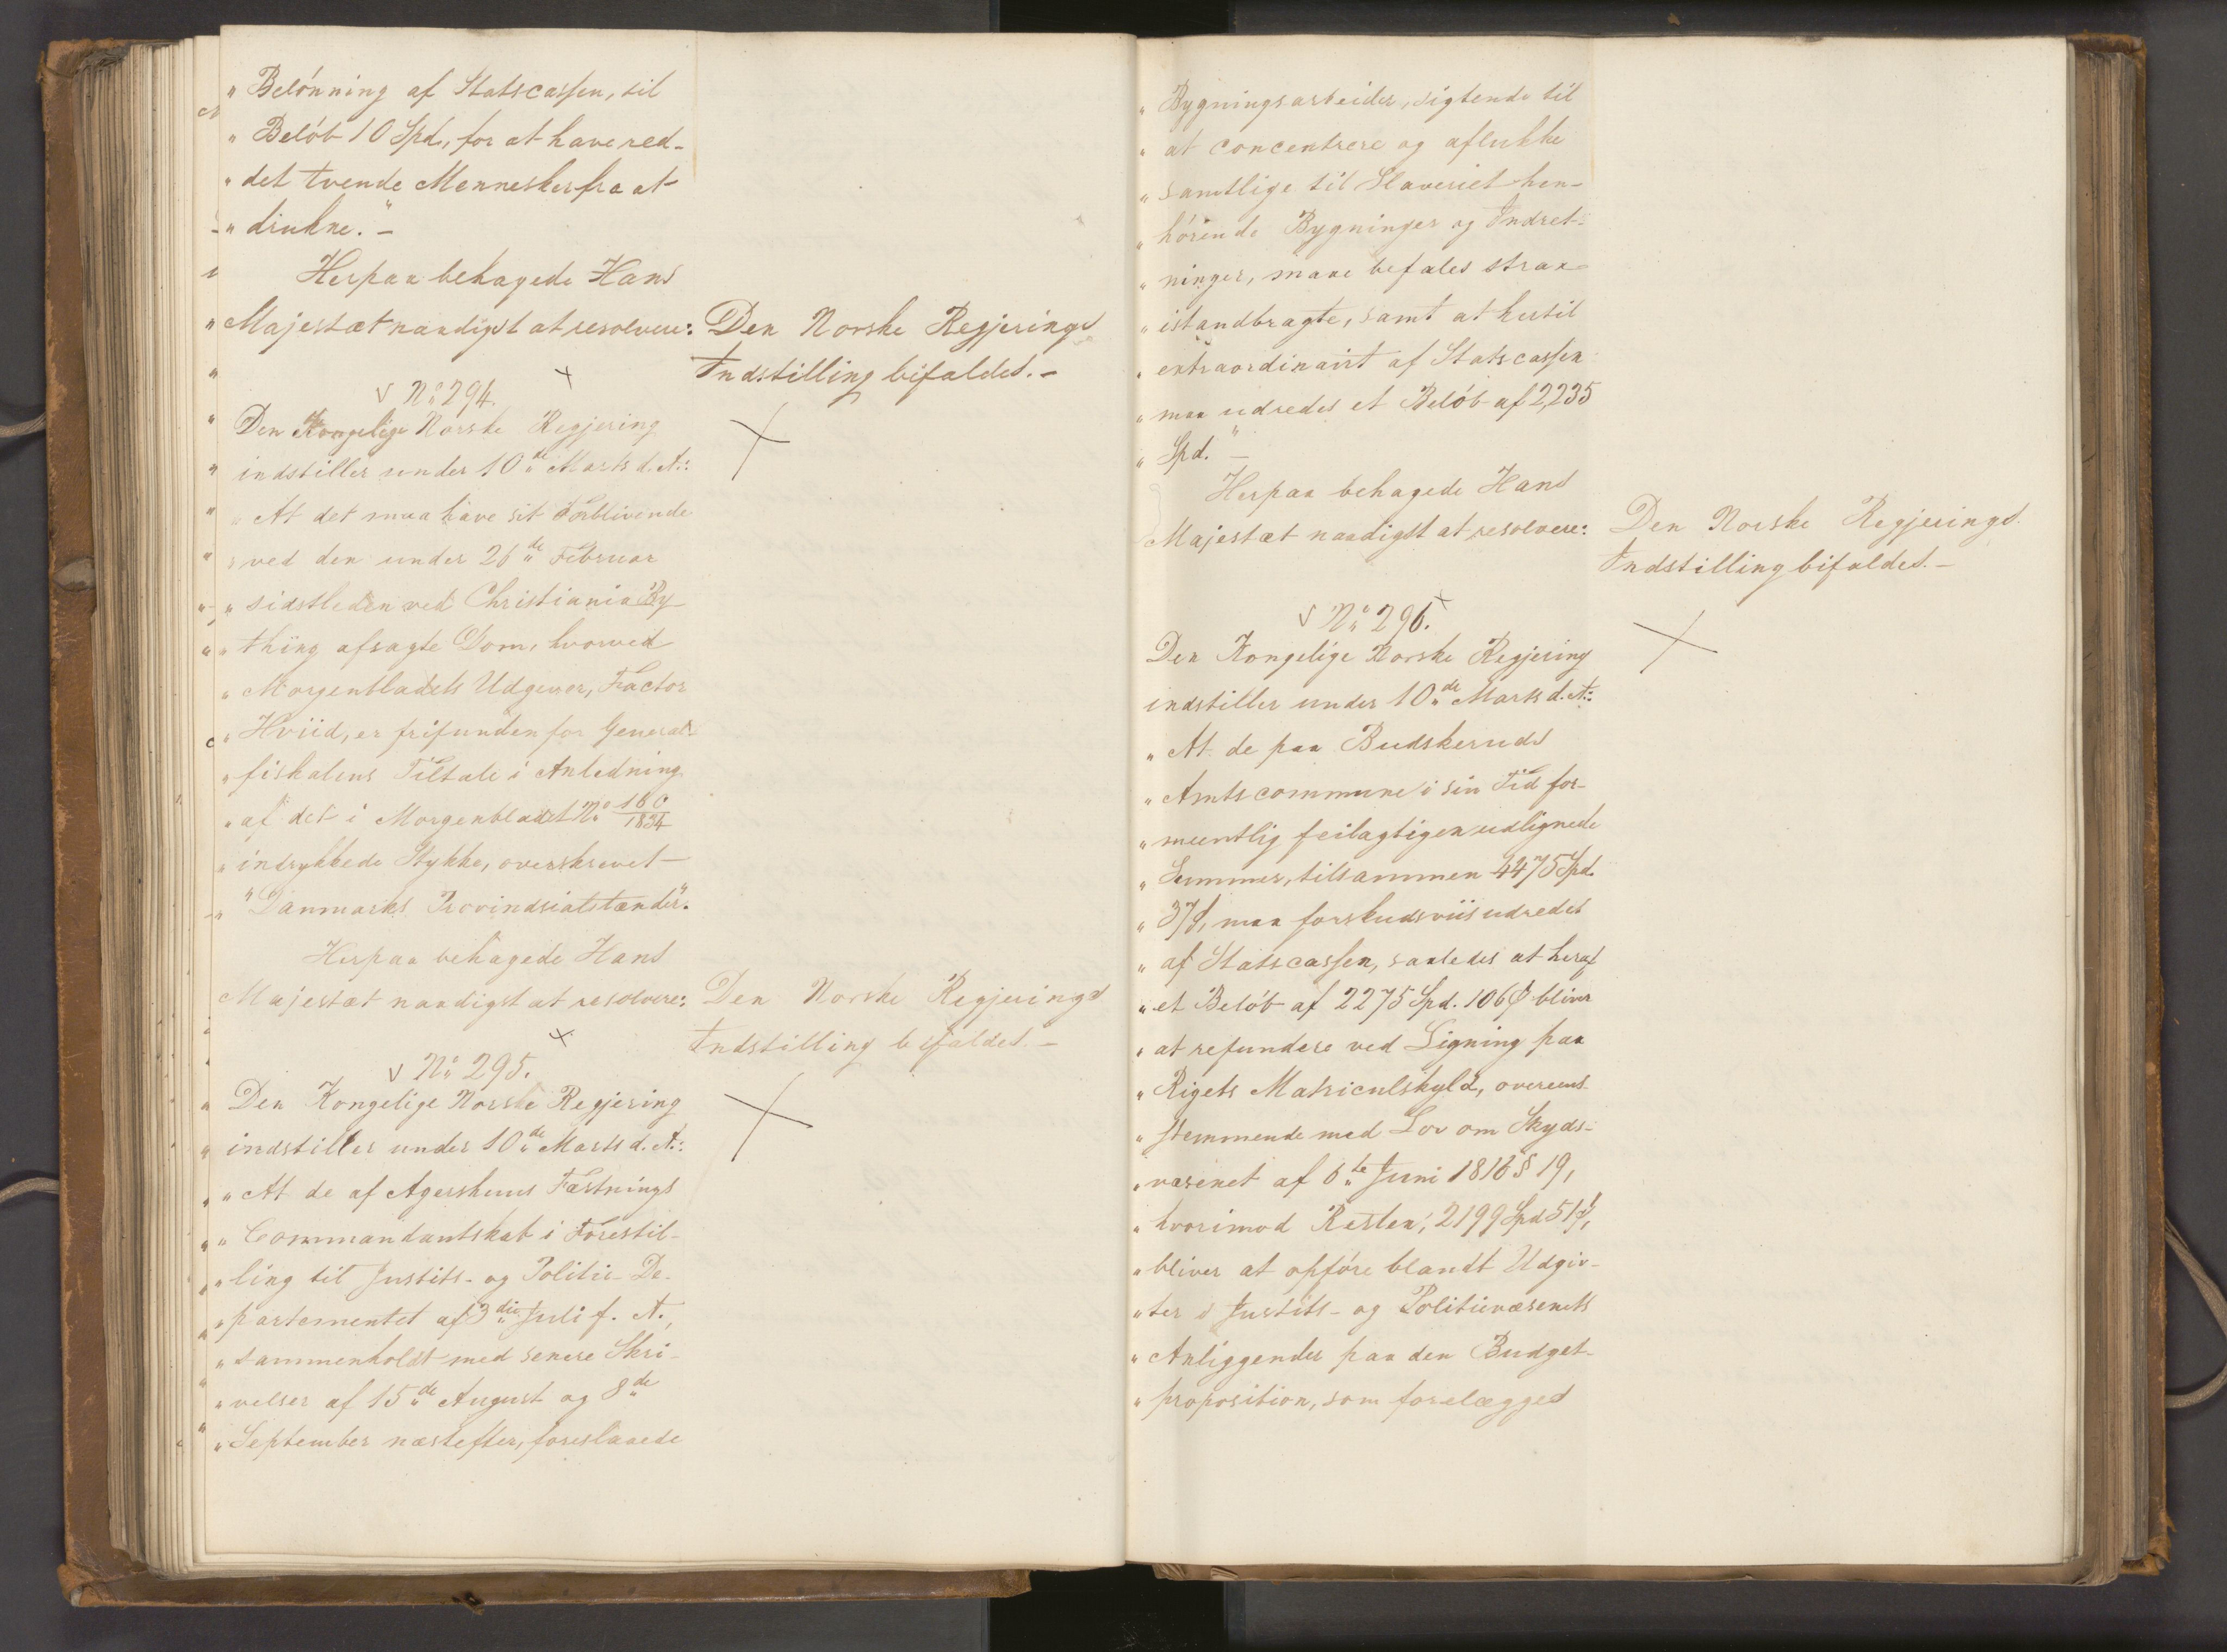 "Belönning af Statscassen, til
"Belöb 10 Spd., for at have red-
"det tvende Mennesker fra at
"drukne." -
Herpaa behagede Hans
Majestæt naadigst at resolvere:
Den Norske Regjerings
Indstilling bifaldes. -
No 294.
Den Kongelige Norske Regjering
indstiller under 10de Marts d. A.:
"At det maa have sit Forblivende
"ved den under 26de Februar
"sidstleden ved Christiania By-
"thing afsagte Dom, hvorved
"Morgenbladets Udgiver, Factor
"Hviid, er frifunden for General-
"fiskalens Tiltale i Anledning
"af det i Morgenbladet No 160/1834
"indrykkede Stykke, overskrevet
""Danmarks Provindsialstænder".
Herpaa behagede Hans
Majestæt naadigst at resolvere:
Den Norske Regjerings
Indstilling bifaldes. -
No 295.
Den Kongelige Norske Regjering
indstiller under 10de Marts d. A.:
"At de af Agershuus Fæstnings
"Commandantskab i Forestil-
"ling til Justits- og Politie-De-
"partementet af 3die Juli f. A.,
"sammenholdt med senere Skri-
"velser af 15de August og 8de
"September næstefter, foreslaaede
"Bygningsarbeider, sigtende til
"at concentrere og aflukke
"samtlige til Slaveriet hen-
"hörende Bygninger og Indret-
"ninger, maae befales strax
"istandbragte, samt at hertil
"extraordinairt af Statscassen
"maa udredes et Belöb af 2,235
"Spd." -
Herpaa behagede Hans
Majestæt naadigst at resolvere:
Den Norske Regjerings
Indstilling bifaldes. -
No 296.
Den Kongelige Norske Regjering
indstiller under 10de Marts d. A.:
"At de paa Budskeruds
"Amtscommune i sin Tid for-
"meentlig feilagtigen udlignede
"Summer, tilsammen 4475 Spd.
"37 ß, maa forskudsviis udredes
"af Statscassen, saaledes at heraf
"et Belöb af 2275 Spd. 106 ß bliver
"at refundere ved Ligning paa
"Rigets Matriculskyld, overeens-
"stemmende med Lov om Skyds-
"væsenet af 6te Juni 1816 § 19,
"hvorimod Resten, 2199 Spd 51 ß,
"bliver at opföre blandt Udgiv-
"ter i Justits- og Politievæsenets
"Anliggender paa den Budget-
"proposition, som forelægges